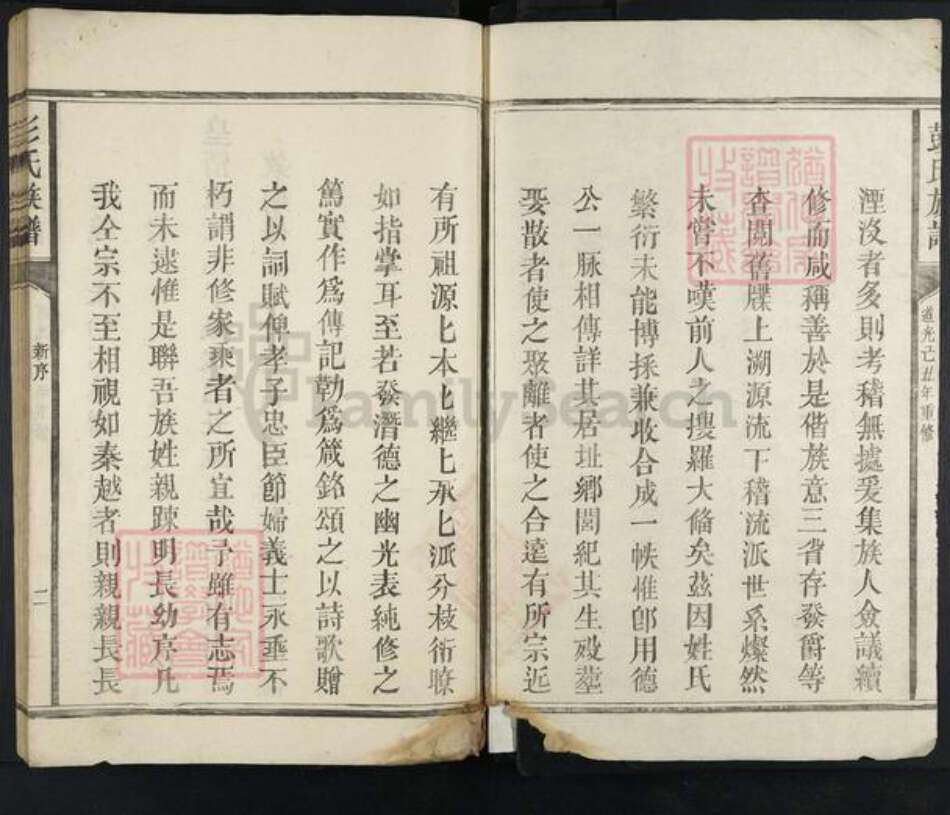 彭氏族譜
道光己丑年重修
湮沒者多則考稽無據爰集族人僉議續
修而咸稱善於是偕族意三省存發爵等
查閱舊牒上溯源流下稽流派世系燦然
未嘗不嘆前人之摉羅大俻矣茲因姓氏
繁衍未能博採兼收合成一帙惟卽用德
公一脈相傳詳其居址鄉閭紀其生歿塟
娶散者使之聚離者使之合遠有所宗近
有所祖源匕本匕繼匕承匕派分枝衍瞭
如指掌耳至若發潛德之幽光表純修之
篤實作爲傳記勒爲箴銘頌之以詩歌贈
之以詞賦俾孝子忠臣節婦義士永垂不
朽謂非修家乘者之所宜哉予雖有志焉
而未逮惟是聯吾族姓親踈明長幼序凡
我仝宗不至相視如秦越者則親親長長
彭氏族譜
新序
二
FamilySearch